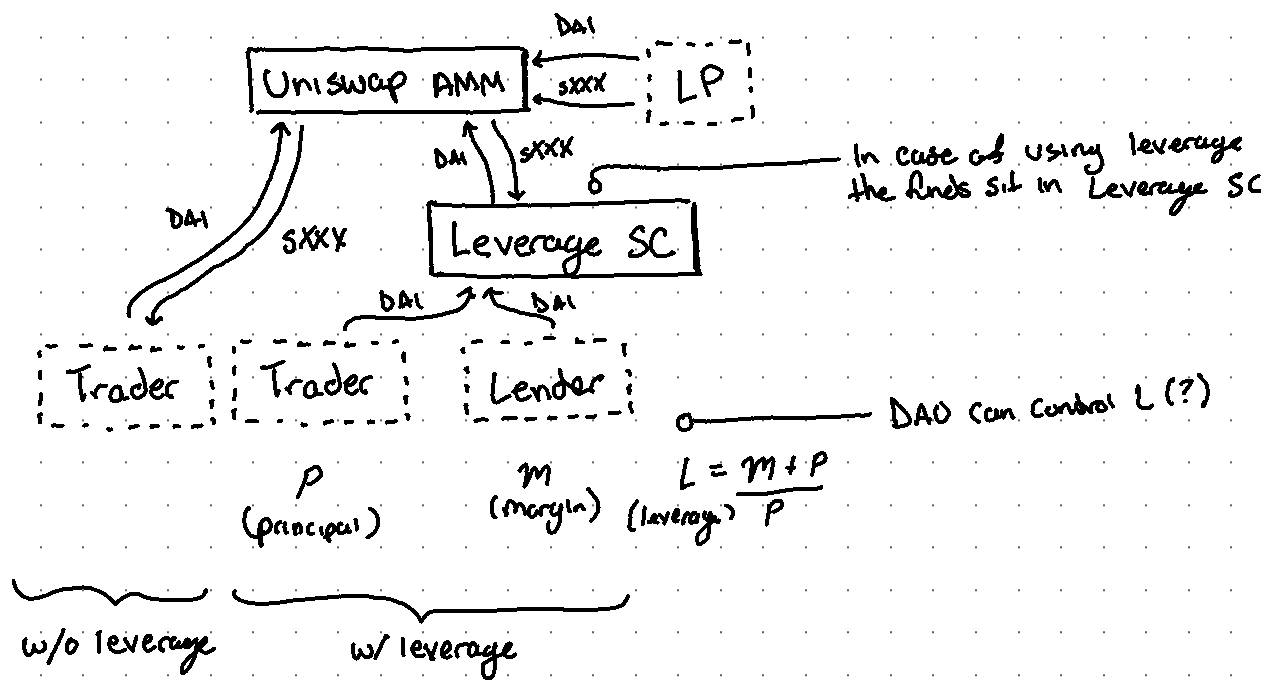 DAI
Uniswap AMM
sXXX
LP
DAI
sXXX
In case of using leverage
the funds sit in Leverage SC
DAI
sXXX
Leverage SC
DAI
DAI
Trader
Trader
Lender
DAO can control L (?)
P
(principal)
m
(margin)
L = m + P
P
(leverage)
w/o leverage
w/ leverage